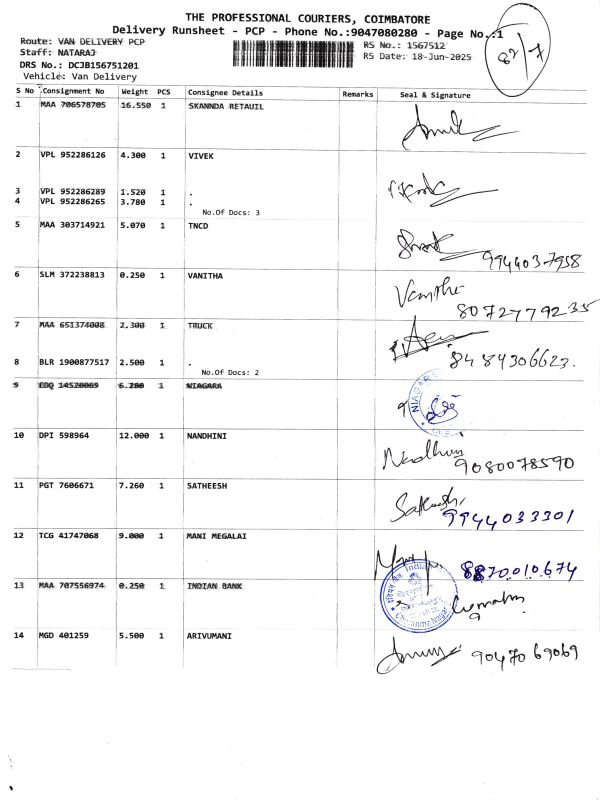 THE PROFESSIONAL COURIERS, COIMBATORE
Delivery Runsheet - PCP - Phone No.:9047080280 - Page No.:1
82/7
Route: VAN DELIVERY PCP
RS No.: 1567512
Staff: NATARAJ
RS Date: 18-Jun-2025
DRS No.: DCJB156751201
Vehicle: Van Delivery
S No Consignment No Weight PCS Consignee Details Remarks Seal & Signature
1 MAA 706578705 16.550 1 SKANNDA RETAUIL
2 VPL 952286126 4.300 1 VIVEK
3 VPL 952286289 1.520 1 .
4 VPL 952286265 3.780 1 .
No.Of Docs: 3
5 MAA 303714921 5.070 1 TNCD
9944037958
6 SLM 372238813 0.250 1 VANITHA
Vanitha
8072779235
7 MAA 651374008 2.300 1 TRUCK
8 BLR 1900877517 2.500 1 .
8484306623.
No.Of Docs: 2
9 EDQ 14520069 6.280 1 NIAGARA
10 DPI 598964 12.000 1 NANDHINI
Nandhini
9080078590
11 PGT 7606671 7.260 1 SATHEESH
Satheesh
9944033301
12 TCG 41747068 9.000 1 MANI MEGALAI
8870010674
13 MAA 707556974 0.250 1 INDIAN BANK
14 MGD 401259 5.500 1 ARIVUMANI
9047069069